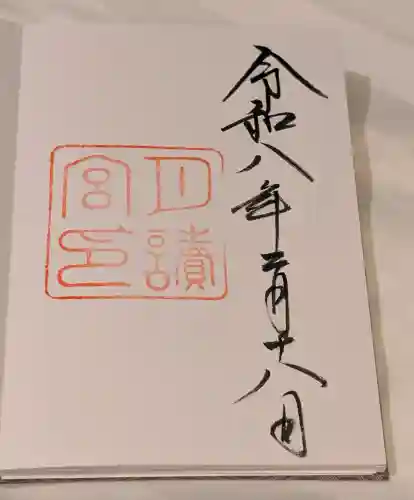 令和八年二月十八日
月讀
宮印